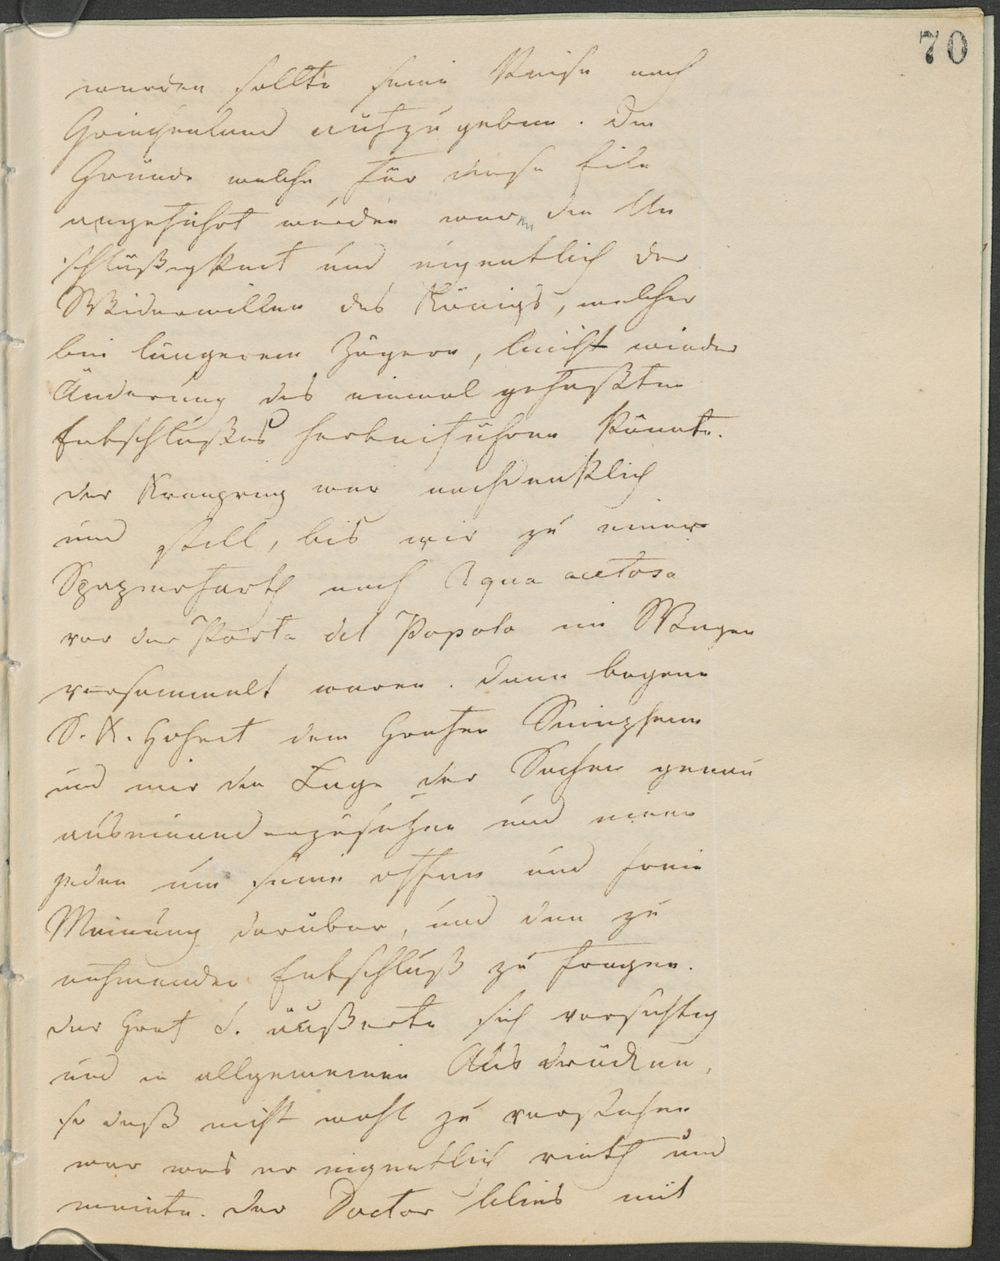 70
werden sollte seine Reise nach
Griechenland aufzugeben. Die
Gründe welche für diese Eile
angeführt wurden waren die Un
schlüßigkeit und eigentlich der
Widerwillen des Königs, welcher
bei längerem Zögern, leicht wieder
Änderung des einmal gefaßten
Entschlußes herbeiführen könnte.
der Kronprinz war nachdenklich
und still, bis wir zu einer
Spazierfarth nach Aqua acetosa
vor der Porta del Popolo im Wagen
versammelt waren. dann begann
S. K. Hoheit dem Grafen
und mir die Lage der Sachen genau
auseinanderzusetzen und einen
jeden um seine offene und freie
Meinung darüber, und den zu
nehmenden Entschluß zu fragen.
der Graf S. äußerte sich vorsichtig
und in allgemeinen Ausdrücken,
so daß nicht wohl zu verstehen
war was er eigentlich rieth und
meinte. der Doctor blieb mit